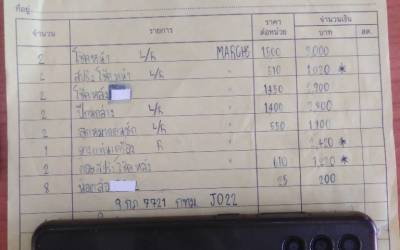 ที่อยู่
จำนวน รายการ ราคาต่อหน่วย จำนวนเงิน บาท สต.
2 โช๊คหน้า L/R MARCHS 1500 3,000
2 L/R " 510 1,020 *
2 โช๊คหลัง " 1450 2,900
2 ปีกนกล่าง L/R " 1400 2,800
2 L/R " 550 1,100
1 R " 2,420 *
2 " 610 1,220 *
8 25 200
9 กภ 7721 กทม J022